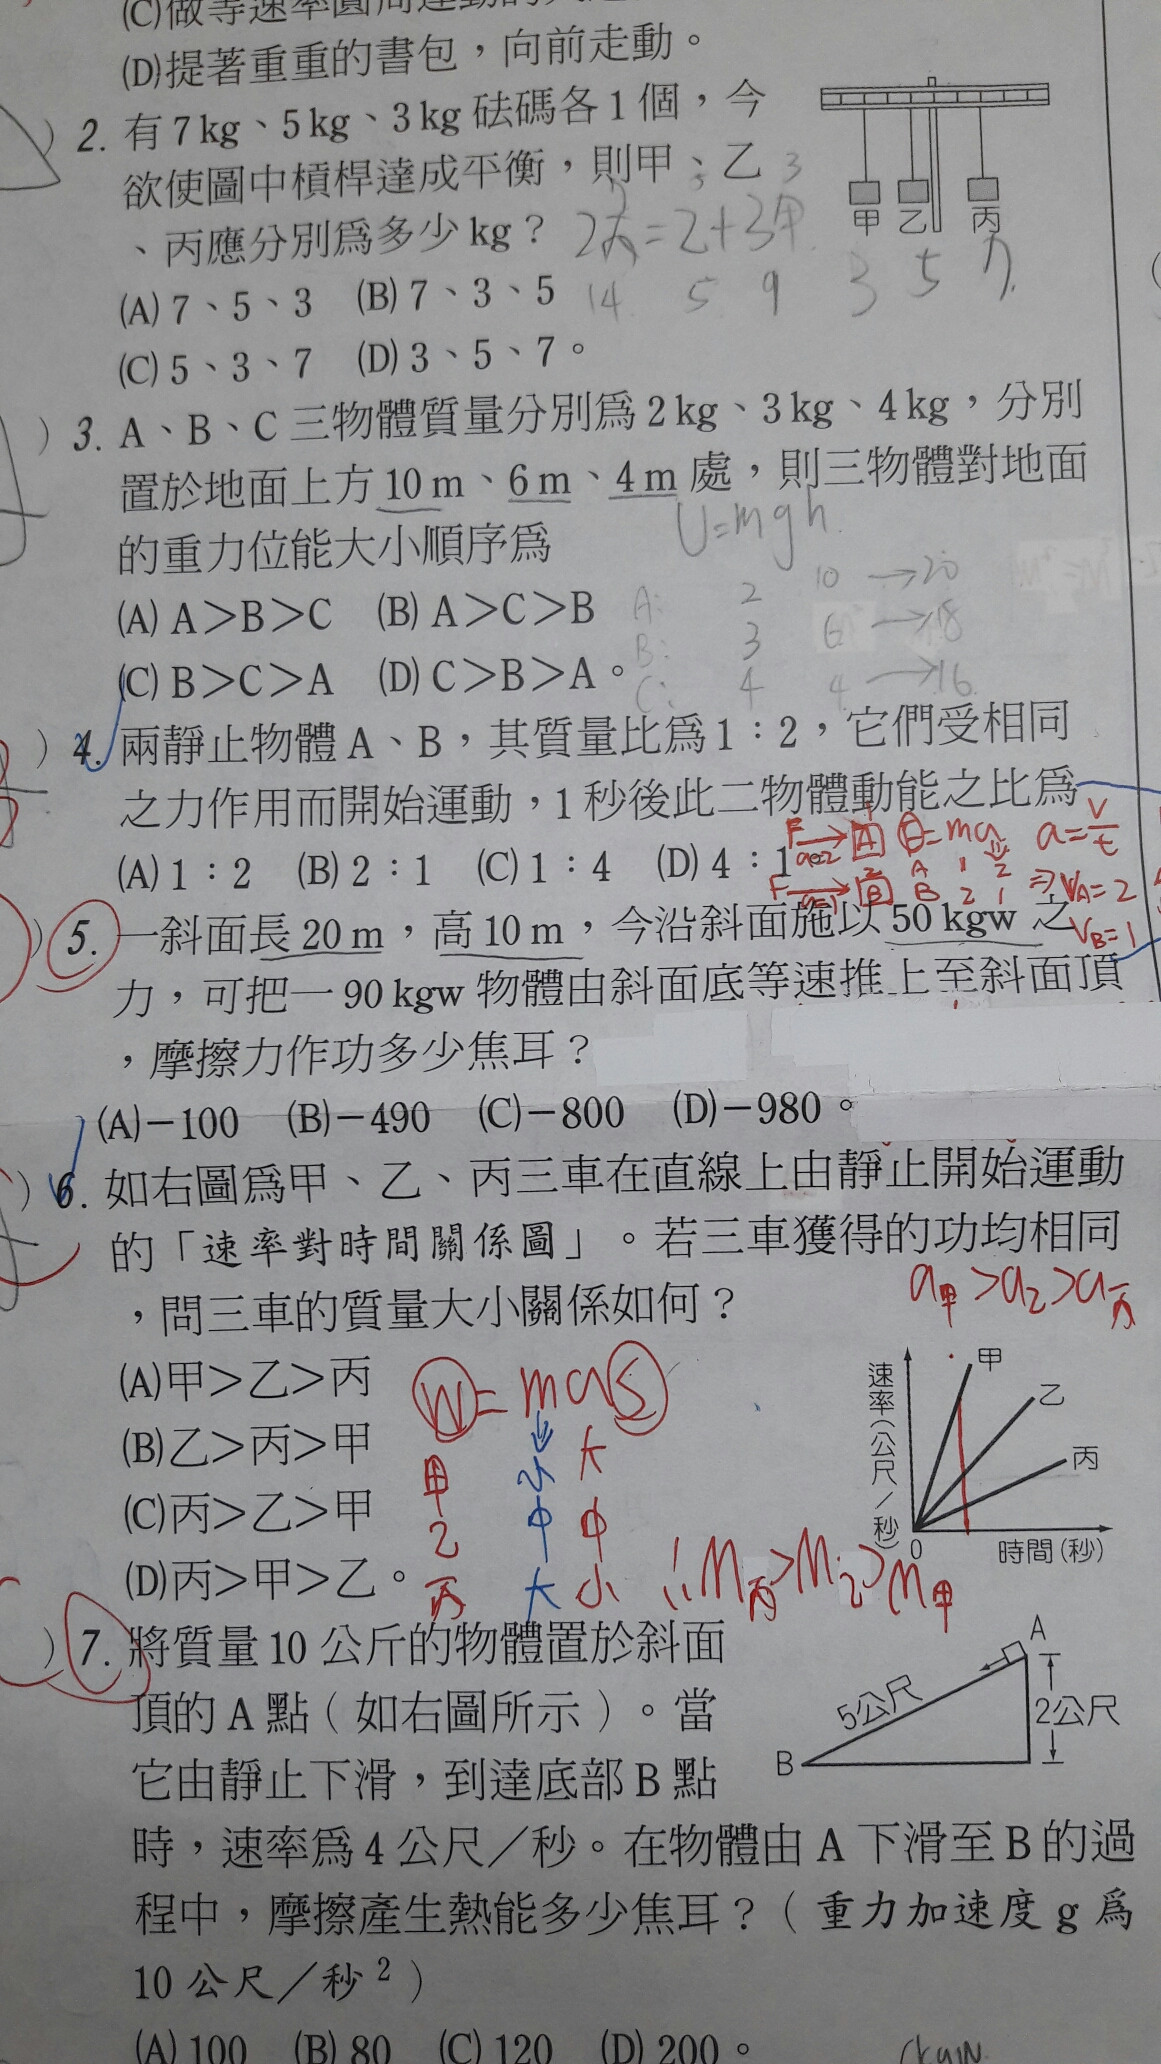 (C)做等速率圓周運動的
(D)提著重重的書包，向前走動。
2. 有 7 kg、5 kg、3 kg 砝碼各 1 個，今
欲使圖中槓桿達成平衡，則甲、乙
、丙應分別爲多少 kg？
2丙=乙+3甲
(A) 7、5、3 (B) 7、3、5
14 5 9
(C) 5、3、7 (D) 3、5、7。
甲 乙 丙
3 5 7
) 3. A、B、C 三物體質量分別爲 2 kg、3 kg、4 kg，分別
置於地面上方 10 m、6 m、4 m 處，則三物體對地面
的重力位能大小順序爲
U=mgh
(A) A＞B＞C (B) A＞C＞B
(C) B＞C＞A (D) C＞B＞A。
A: 2 10 →20
B: 3 6 →18
C: 4 4 →16
) 4. 兩靜止物體 A、B，其質量比爲 1：2，它們受相同
之力作用而開始運動，1 秒後此二物體動能之比爲
(A) 1：2 (B) 2：1 (C) 1：4 (D) 4：1
F A =ma a=v/t
a=2 A 1 2 ⇒VA=2
F B B 2 1 VB=1
) 5. 一斜面長 20 m，高 10 m，今沿斜面施以 50 kgw 之
力，可把一 90 kgw 物體由斜面底等速推上至斜面頂
，摩擦力作功多少焦耳？
(A)－100 (B)－490 (C)－800 (D)－980。
) 6. 如右圖爲甲、乙、丙三車在直線上由靜止開始運動
的「速率對時間關係圖」。若三車獲得的功均相同
，問三車的質量大小關係如何？
a甲＞a乙＞a丙
(A)甲＞乙＞丙
(B)乙＞丙＞甲
(C)丙＞乙＞甲
(D)丙＞甲＞乙。
W=mas
甲 小 大
乙 中 中
丙 大 小
∴M丙＞M乙＞M甲
速率(公尺／秒)
甲
乙
丙
0 時間(秒)
) 7. 將質量 10 公斤的物體置於斜面
頂的 A 點（如右圖所示）。當
它由靜止下滑，到達底部 B 點
時，速率爲 4 公尺／秒。在物體由 A 下滑至 B 的過
程中，摩擦產生熱能多少焦耳？（重力加速度 g 爲
10 公尺／秒²）
A
5公尺
2公尺
B
(A) 100 (B) 80 (C) 120 (D) 200。